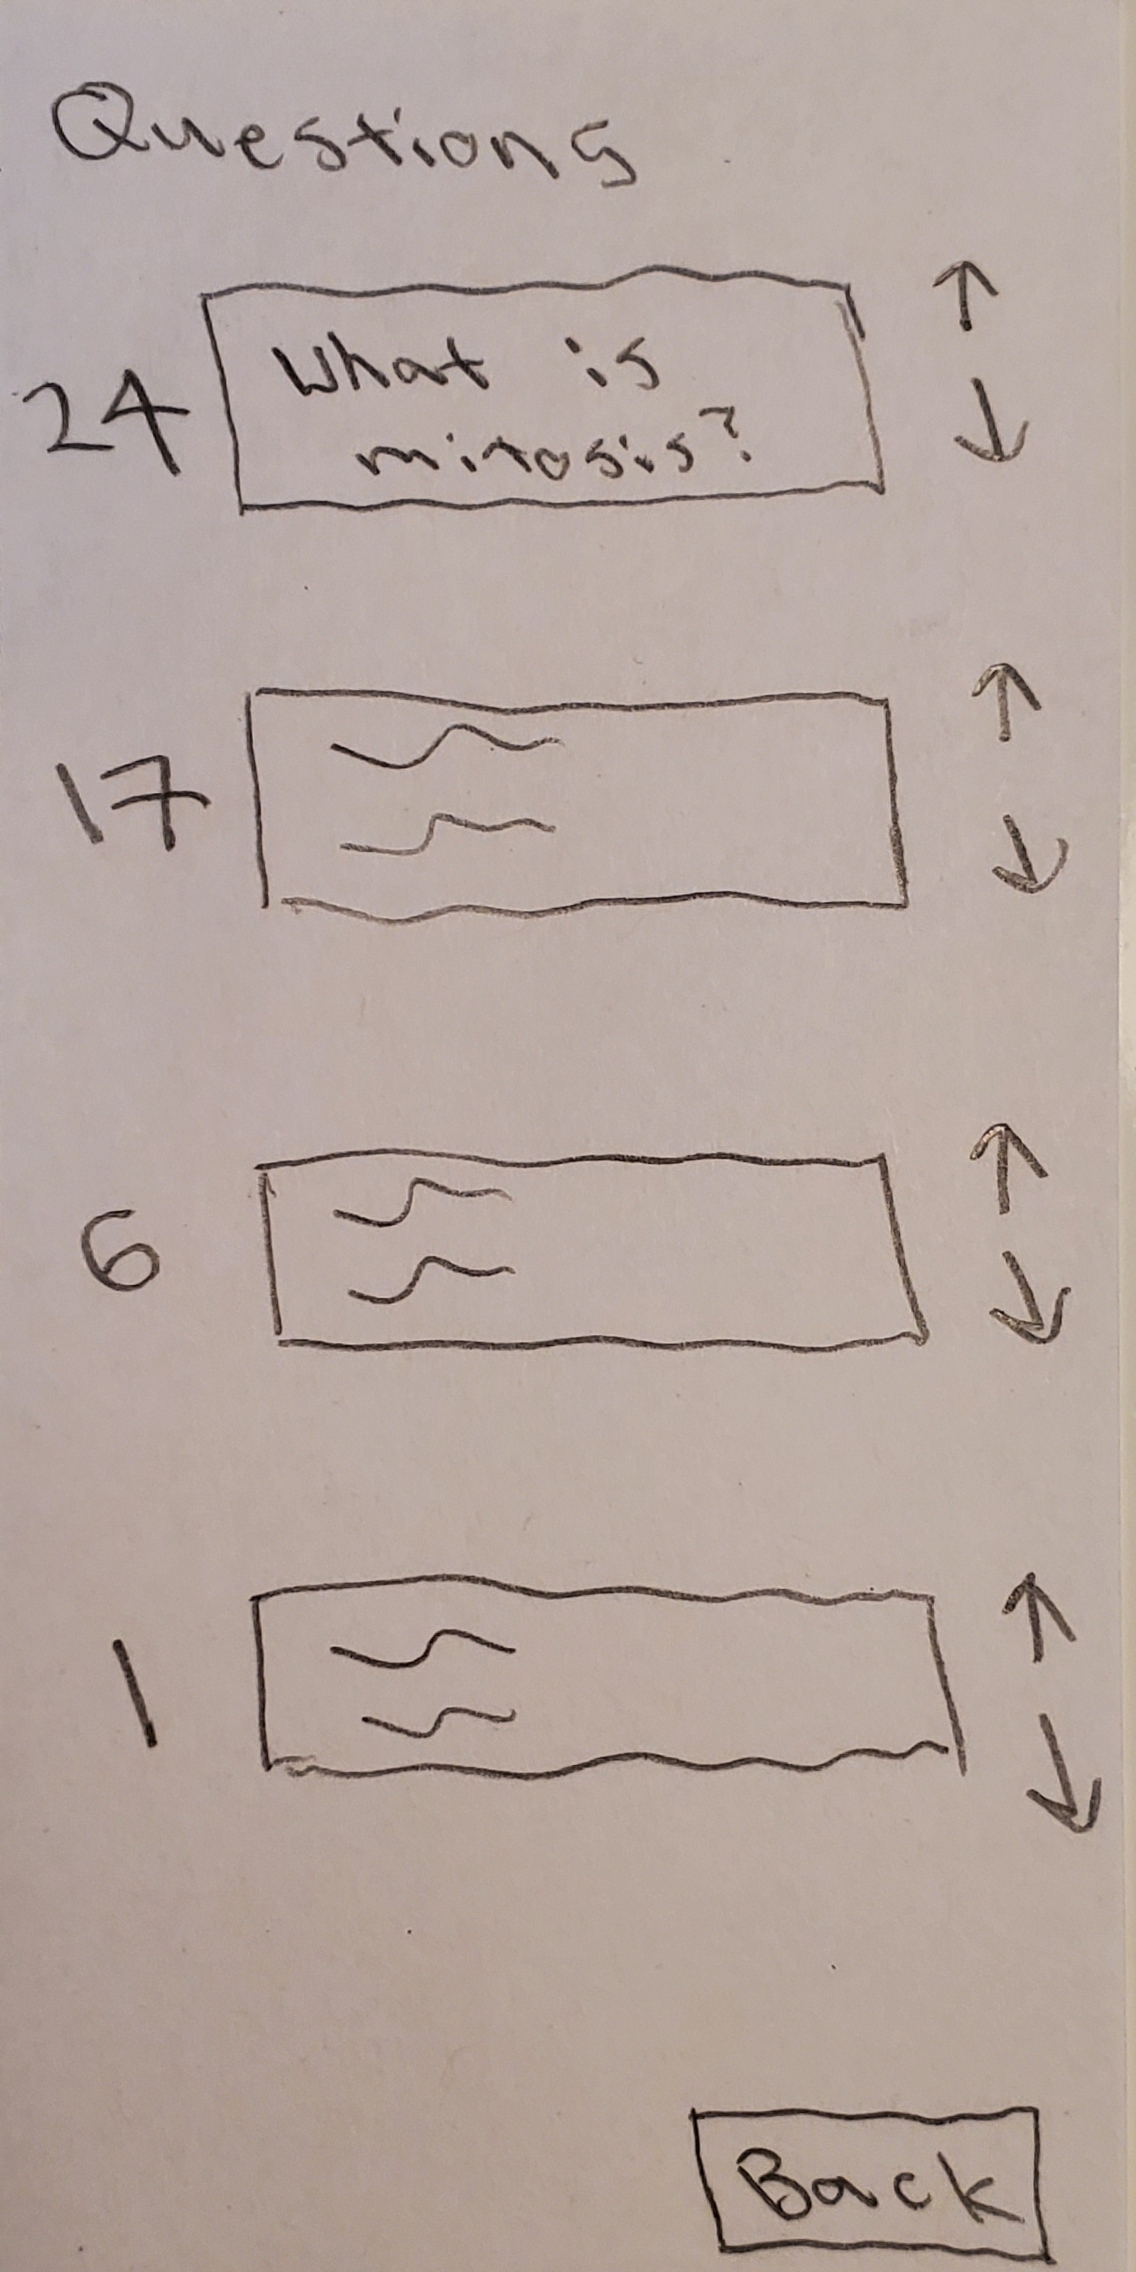 Questions
24
What is
mitosis?
↑
↓
17
↑
↓
6
↑
↓
1
↑
↓
Back